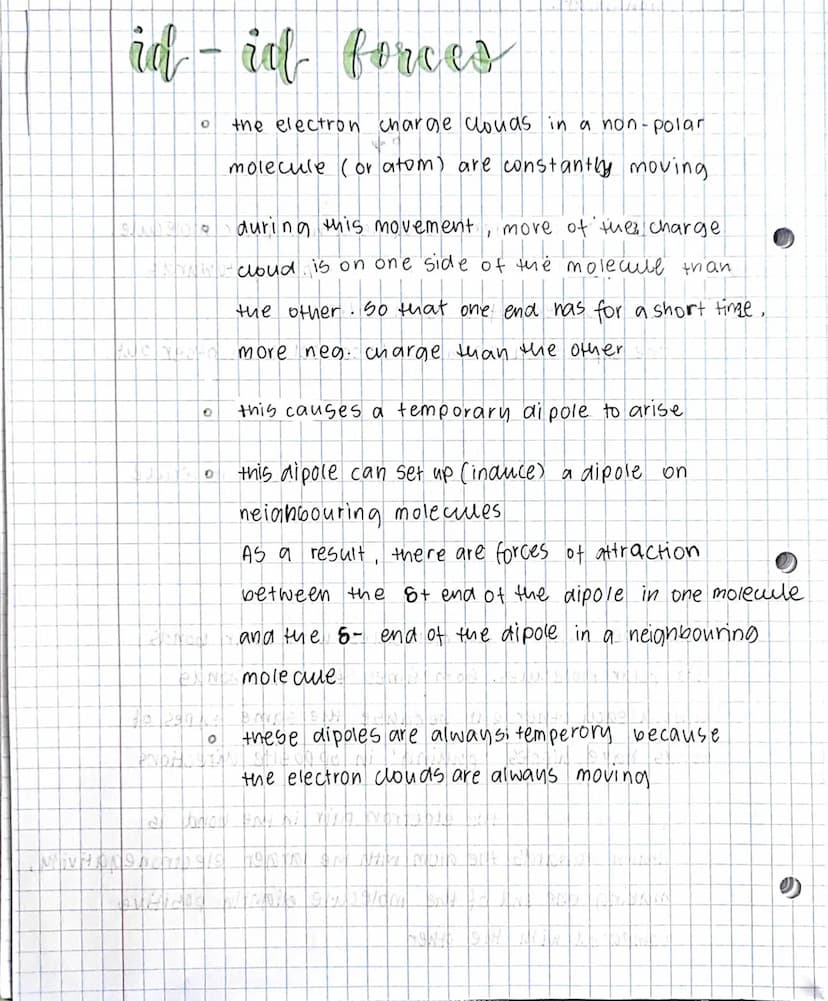 id - id forces
the electron charge clouds in a non-polar
molecule (or atom) are constantly moving
during this movement, more of the charge
cloud is on one side of the molecule than
the other. so that one end has for a short time,
more neg. charge than the other
this causes a temporary dipole to arise
this dipole can set up (induce) a dipole on
neighbouring molecules
As a result, there are forces of attraction
between the δ+ end of the dipole in one molecule
and the δ- end of the dipole in a neighbouring
molecule
these dipoles are always temperory because
the electron clouds are always moving